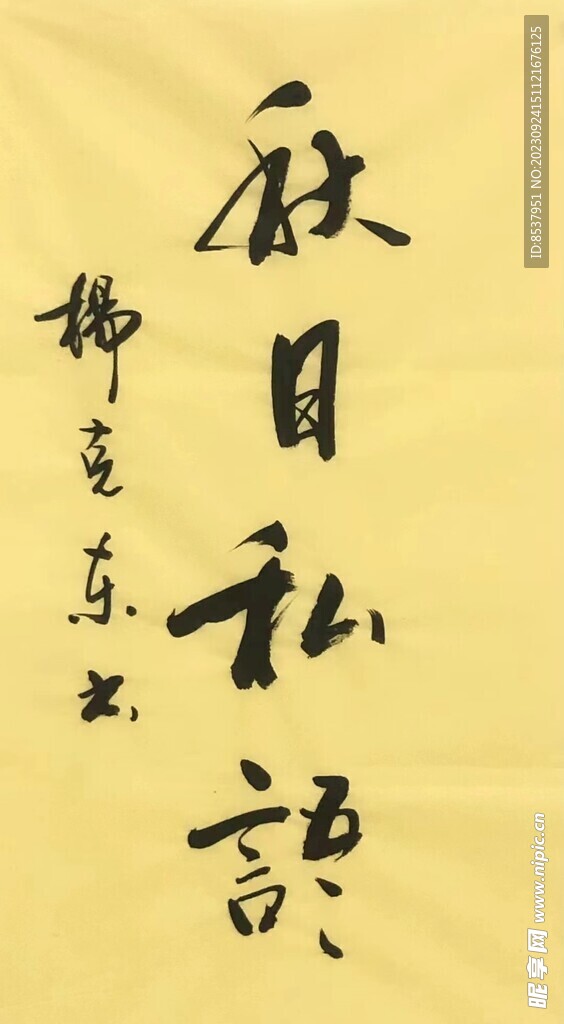 秋日私語
楊克东书
ID:8537951 NO:20230924151121676125
昵享网 www.nipic.cn